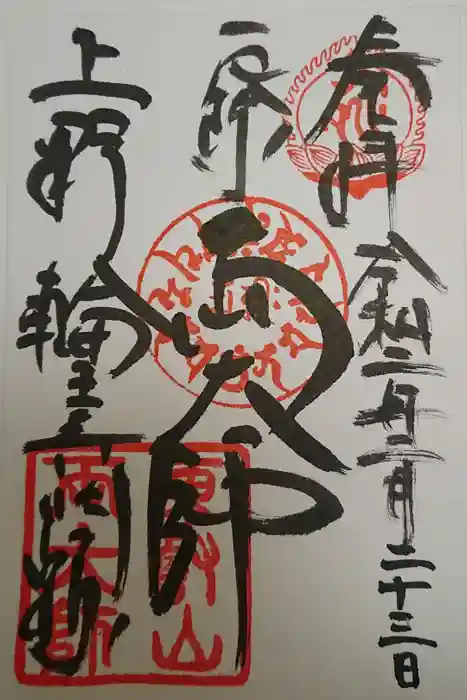 奉拝
令和二年二月二十三日
両大師
上野輪王寺門跡
東叡山
両大師